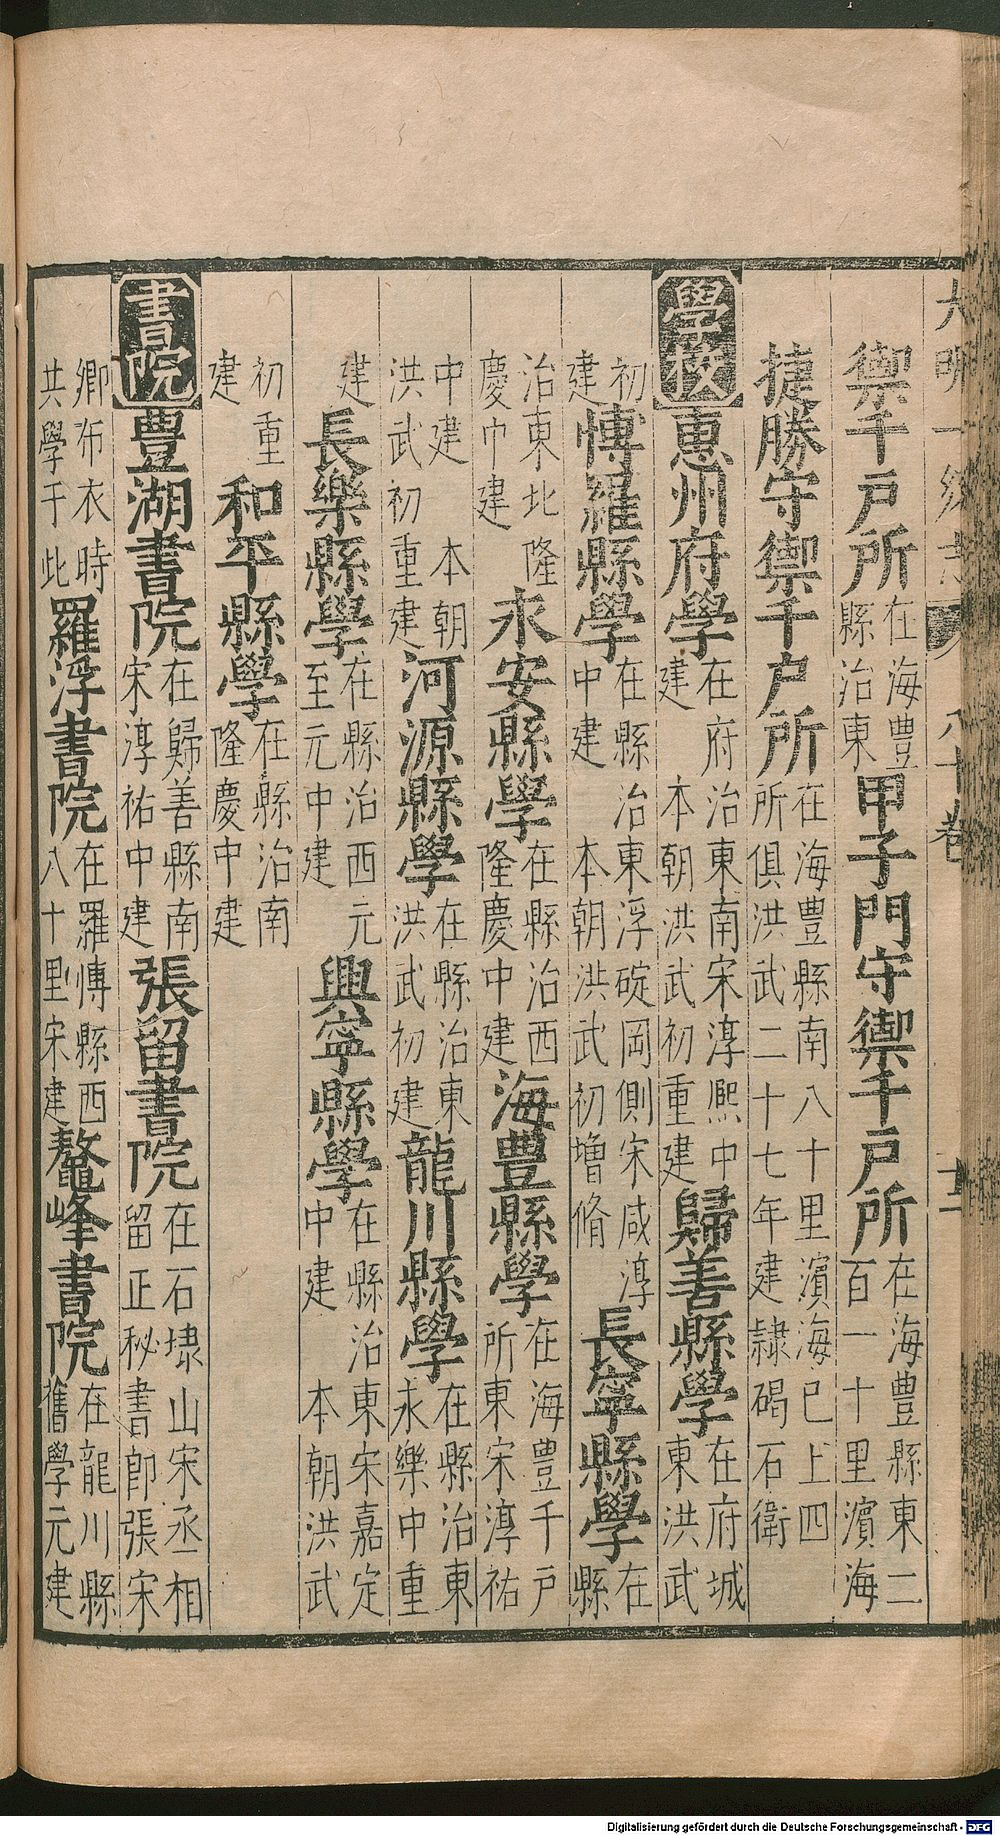 大明一統志 八十卷
禦千戶所在海豐縣治東甲子門守禦千戶所在海豐縣東二百一十里濱海
捷勝守禦千户所在海豐縣南八十里濱海已上四所俱洪武二十七年建隸碣石衛
學校惠州府學在府治東南宋淳熈中建本朝洪武初重建歸善縣學在府城東洪武
初建愽羅縣學在縣治東浮碇岡側宋咸淳中建本朝洪武初增脩長寧縣學在縣
治東北隆慶中建永安縣學在縣治西隆慶中建海豐縣學在海豐千戶所東宋淳祐
中建本朝洪武初重建河源縣學在縣治東洪武初建龍川縣學在縣治東永樂中重
建長樂縣學在縣治西元至元中建興寧縣學在縣治東宋嘉定中建本朝洪武
初重建和平縣學在縣治南隆慶中建
書院豐湖書院在歸善縣南宋淳祐中建張留書院在石埭山宋丞相留正秘書郎張宋
卿布衣時共學于此羅浮書院在羅愽縣西八十里宋建鰲峰書院在龍川縣舊學元建
Digitalisierung gefördert durch die Deutsche Forschungsgemeinschaft - DFG